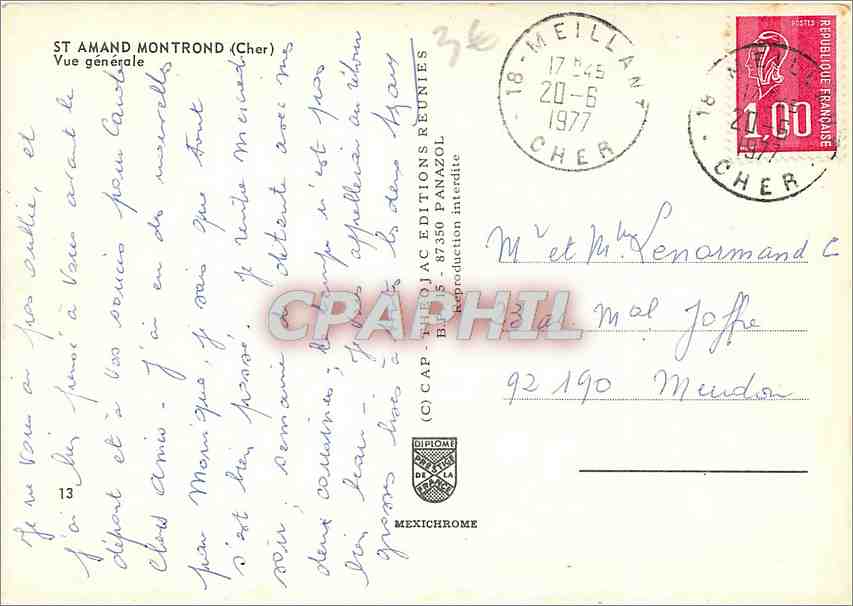 ST AMAND MONTROND (Cher)
Vue générale
3€
18 - MEILLANT
17H45
20-6
1977
CHER
POSTES
REPUBLIQUE FRANÇAISE
1,00
18 - MEILLANT
20-6
1977
CHER
Je ne vous ai pas oublié, et
j'ai bien pensé à vous avant le
départ et à vos soucis pour Carole
Chers amis - J'ai eu des nouvelles
par Monique, je sais que tout
s'est bien passé. Je rentre mercredi
soir, semaine de détente avec mes
deux cousines, le temps n'est pas
bien beau - Je vous appellerai au retour
grosses bises à tous les deux
(C) CAP - THEOJAC EDITIONS REUNIES
B.P. 15 - 87350 PANAZOL
Reproduction interdite
Mr et Mme Lenormand C
3 Mal Joffre
92190 Meudon
CPAPHIL
DIPLOME
PRESTIGE
DE LA
FRANCE
MEXICHROME
13